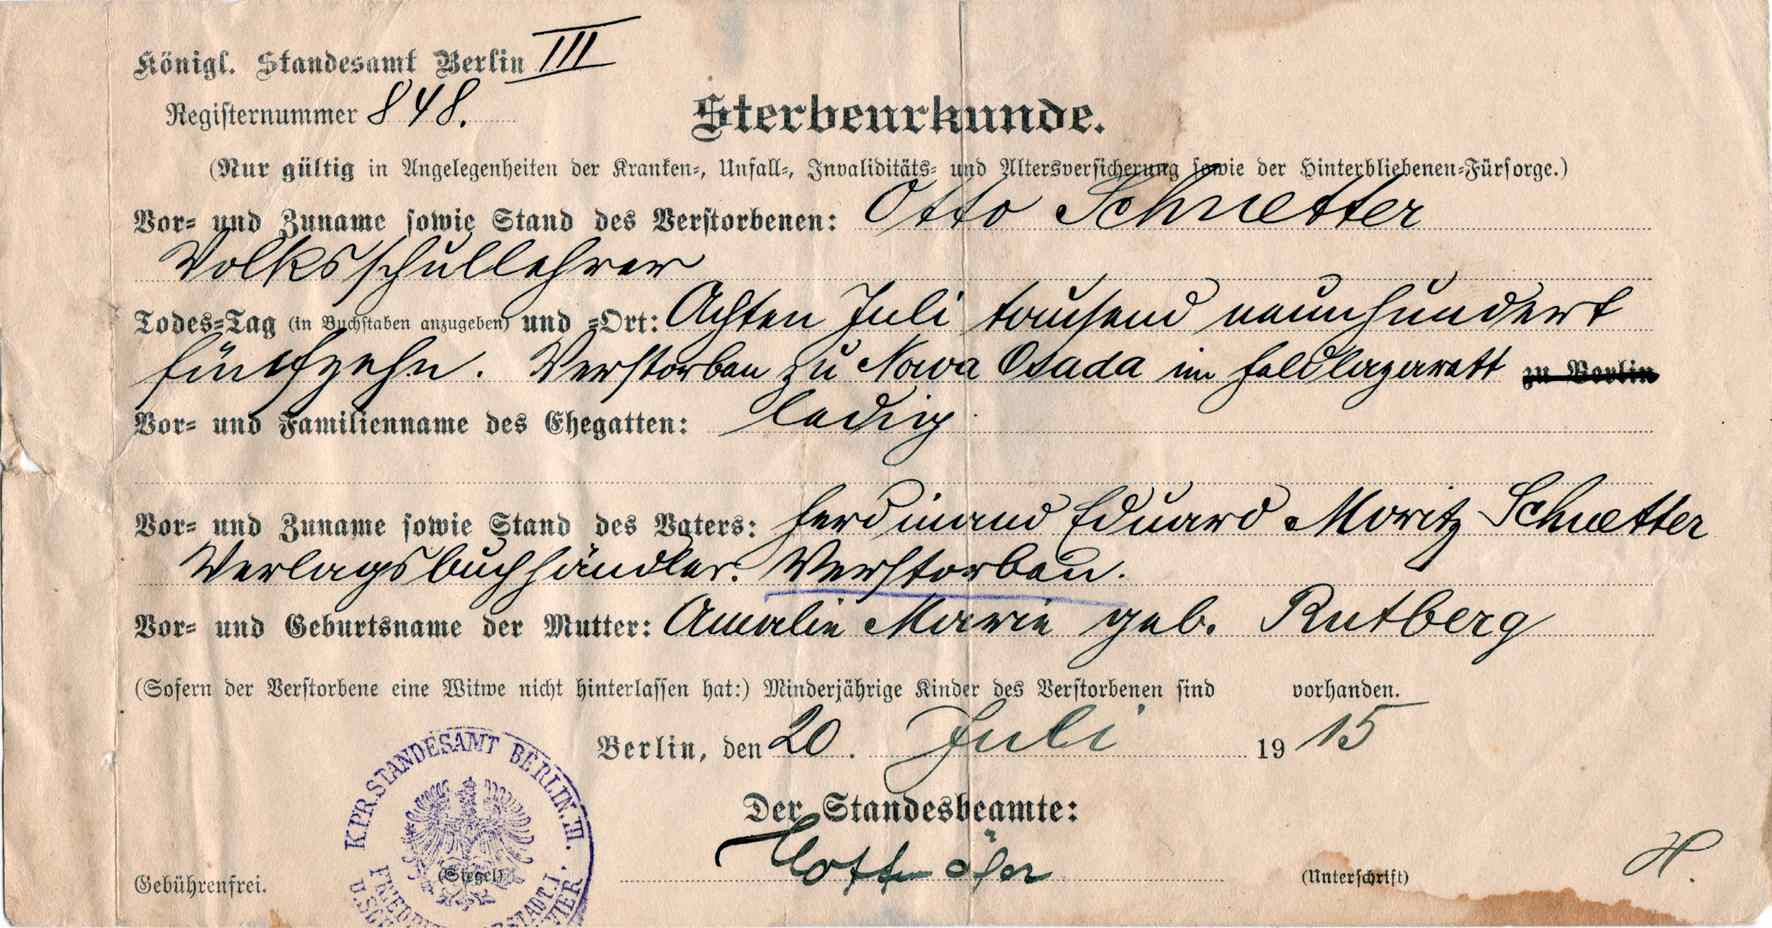 Königl. Standesamt Berlin III
Registernummer 848.
Sterbeurkunde.
(Nur gültig in Angelegenheiten der Kranken-, Unfall-, Invaliditäts- und Altersversicherung sowie der Hinterbliebenen-Fürsorge.)
Vor- und Zuname sowie Stand des Verstorbenen: Otto Schnetter
Volksschullehrer
Todes-Tag (in Buchstaben anzugeben) und -Ort: Achten Juli tausend neunhundert
fünfzehn. Verstorben zu Nowa Osada im Feldlazarett zu Berlin
Vor- und Familienname des Ehegatten: ledig.
Vor- und Zuname sowie Stand des Vaters: Ferdinand Eduard Moritz Schnetter
Verlagsbuchhändler. Verstorben.
Vor- und Geburtsname der Mutter: Amalie Marie geb. Rutberg
(Sofern der Verstorbene eine Witwe nicht hinterlassen hat:) Minderjährige Kinder des Verstorbenen sind vorhanden.
Berlin, den 20. Juli 1915
Der Standesbeamte:
K.PR.STANDESAMT BERLIN.III.
(Siegel)
(Unterschrift)
H.
Gebührenfrei.